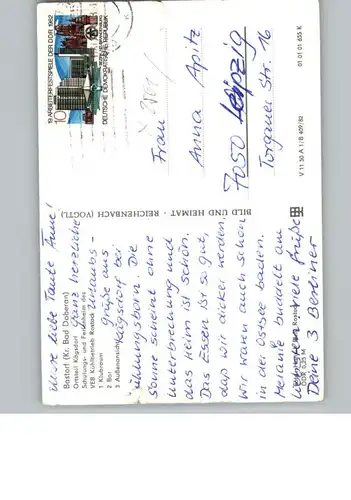 Meine liebe Tante Änne!
Bastorf (Kr. Bad Doberan)
Ortsteil Kägsdorf
Schulungs- und Ferienheim des
VEB Kühlbetrieb Rostock
1 Klubraum
2 Bar
3 Außenansicht
Ganz herzliche
Urlaubs-
grüße aus
Kägsdorf bei
Kühlungsborn. Die
Sonne scheint ohne
Unterbrechung und
das Heim ist schön.
Das Essen ist so gut,
daß wir dicker werden.
Wir waren auch schon
in der Ostsee baden.
Melanie buddelt am
viele Grüße
Deine 3 Berliner
DDR 0,25 M
BILD UND HEIMAT · REICHENBACH (VOGTL)
19. ARBEITERFESTSPIELE DER DDR 1982
10
DEUTSCHE DEMOKRATISCHE REPUBLIK
Frau
Anna Apitz
7050 Leipzig
Torgauer Str. 16
V 11 50 A 1/B 409/82
01 01 01 655 K